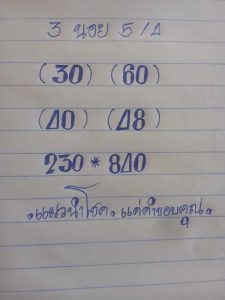 3 นอย 5/4
(30) (60)
(40) (48)
230 * 840
.แมวนำโชค. แค่คำขอบคุณ.